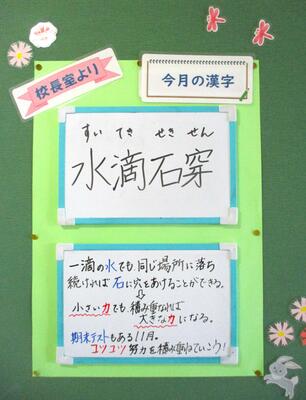 校長室より
今月の漢字
すい てき せき せん
水滴石穿
一滴の水でも、同じ場所に落ち
続ければ石に穴をあけることができる。
⇩
小さい力でも、積み重なれば
大きな力になる。
期末テストもある11月。
コツコツ努力を積み重ねていこう!